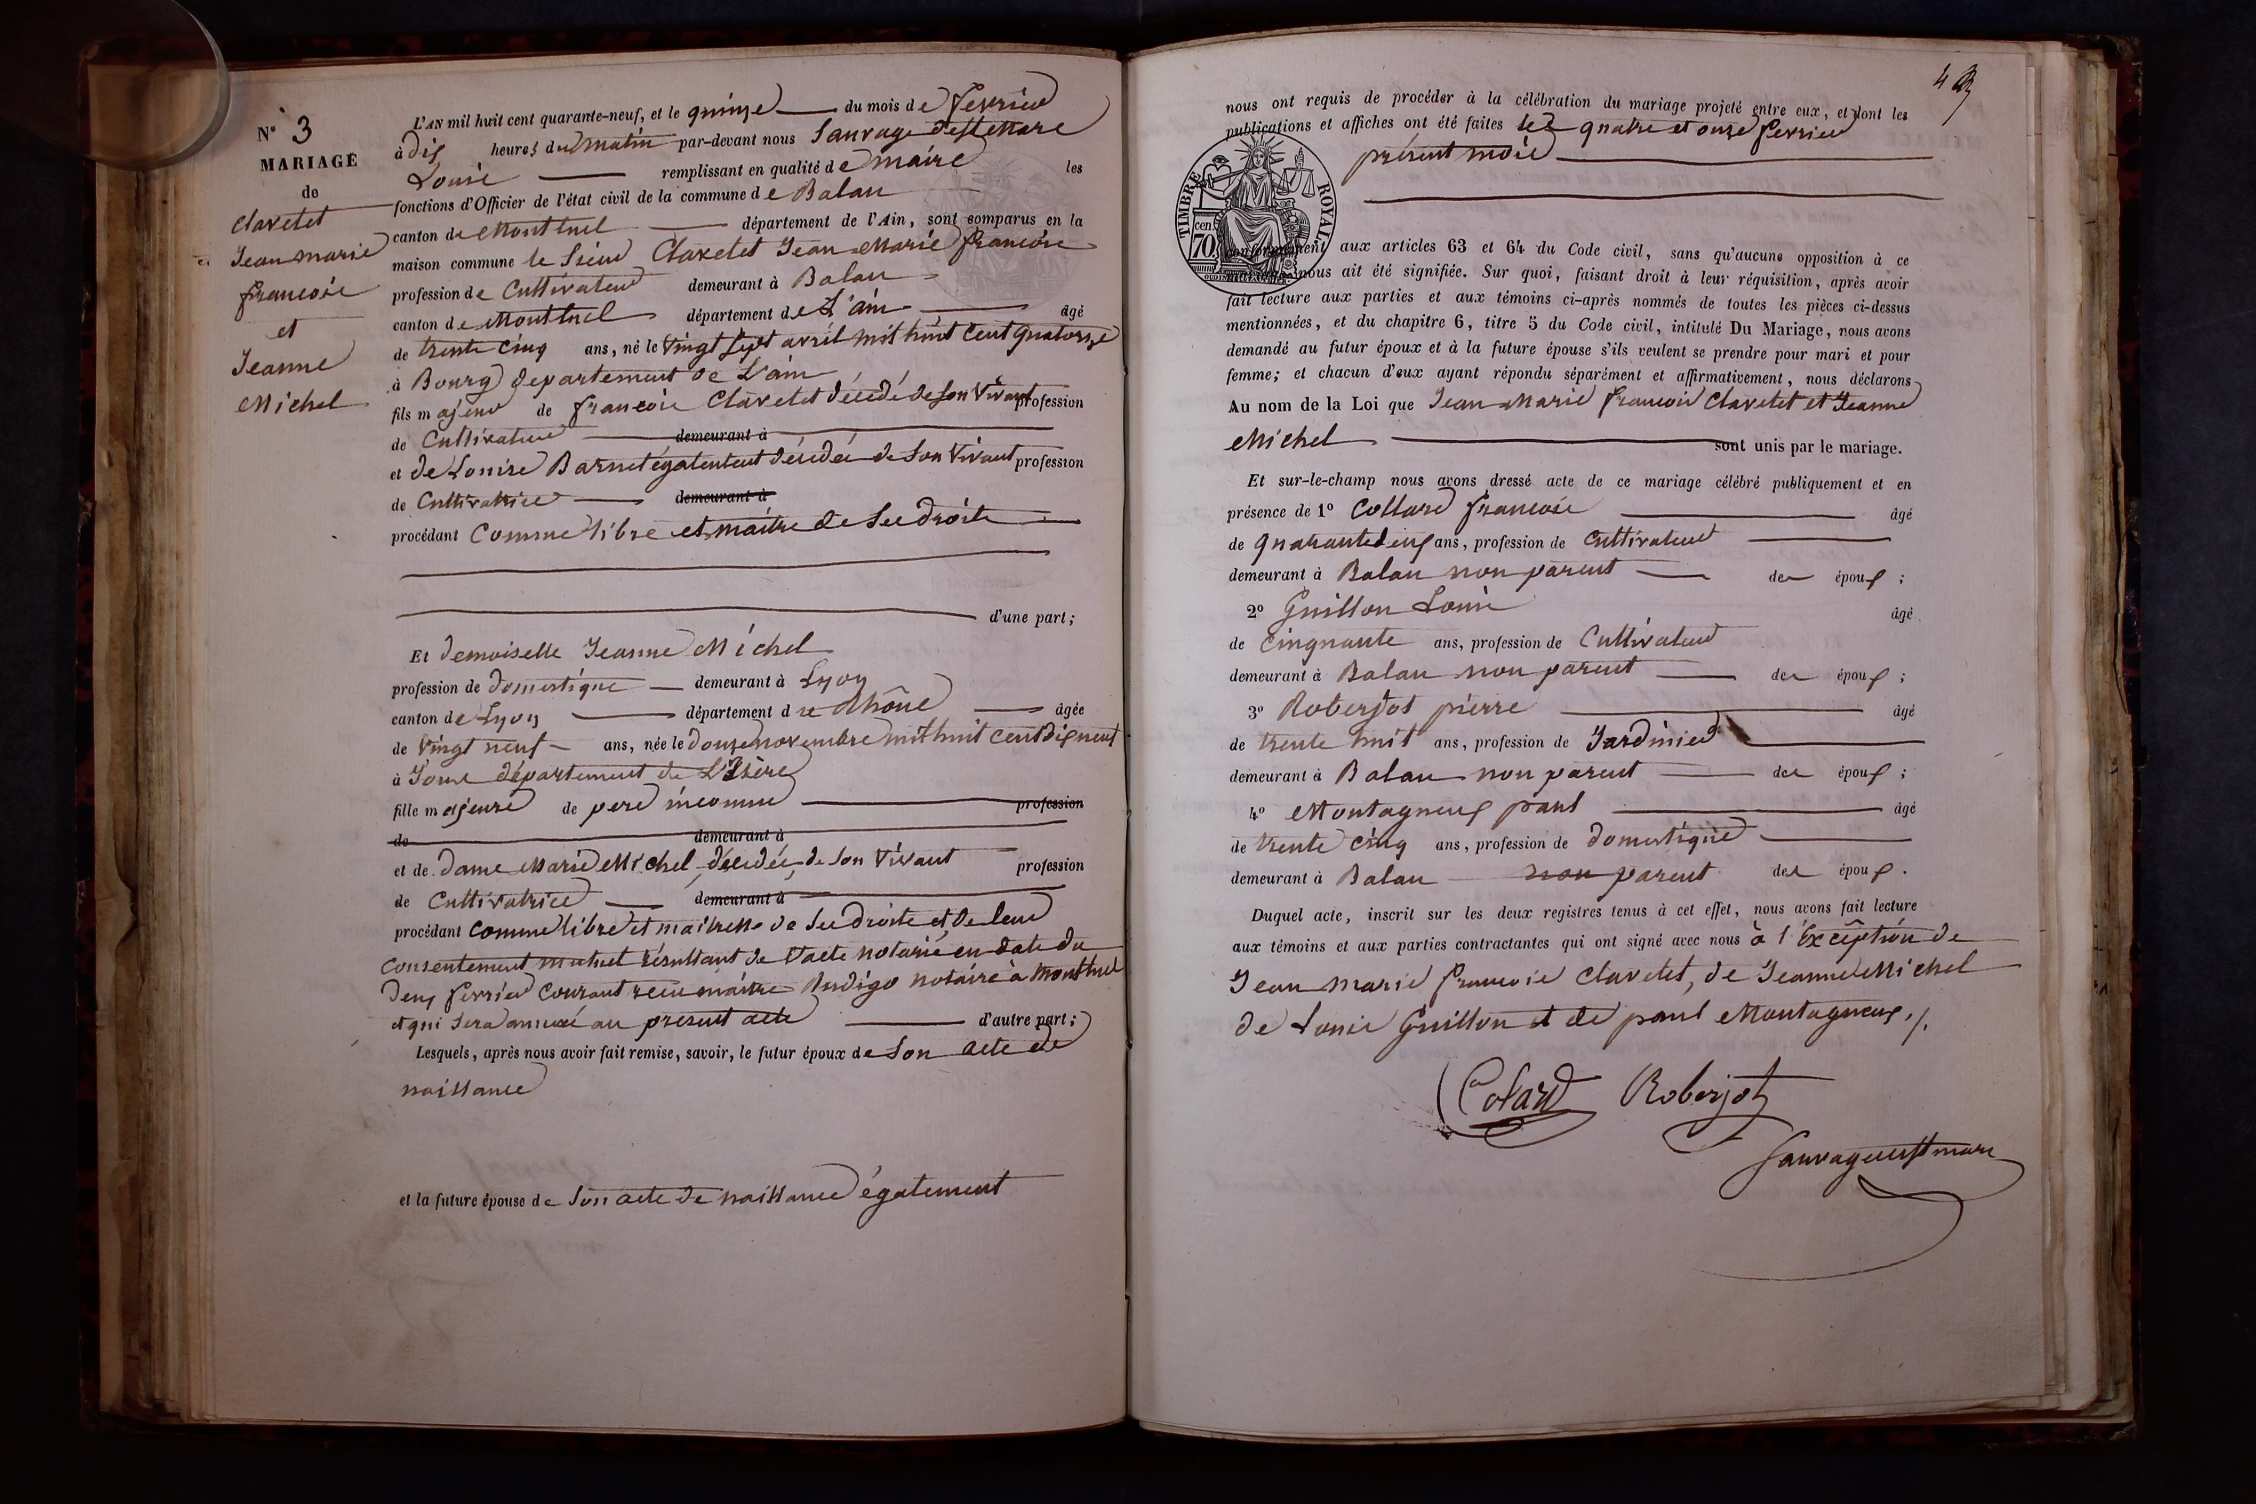 N° 3
MARIAGE
de
Clavelet
Jean marie
francois
et
Jeanne
Michel
L'AN mil huit cent quarante-neuf, et le quinze du mois de fevrier
à dix heures du matin par-devant nous Sauvage de St Mare
Louis remplissant en qualité de maire les
fonctions d'Officier de l'état civil de la commune de Balan
canton de Montluel département de l'Ain, sont comparus en la
maison commune le Sieur Clavelet Jean Marie francois
profession de Cultivateur demeurant à Balan
canton de Montluel département de L'ain âgé
de trente cinq ans, né le vingt sept avril mil huit cent quatorze
à Bourg departement de L'ain
fils majeur de francois Clavelet décédé de son vivant profession
de Cultivateur demeurant à
et de Louise Barnet également décédée de son vivant profession
de Cultivatrice demeurant à
procédant comme libre et maitre de ses droits
d'une part;
Et demoiselle Jeanne Michel
profession de domestique demeurant à Lyon
canton de Lyon département du Rhône âgée
de vingt neuf ans, née le douze novembre mil huit cent dix neuf
à département de L'Isère
fille majeure de pere inconnu profession
de demeurant à
et de dame Marie Michel décédée de son vivant profession
de Cultivatrice demeurant à
procédant comme libre et maitresse de ses droits et de leur
consentement mutuel résultant de l'acte notarié en date du
deux fevrier courant recu maitre Rudigo notaire à Montluel
et qui sera annexé au present acte d'autre part;
Lesquels, après nous avoir fait remise, savoir, le futur époux de son acte de
naissance
et la future épouse de son acte de naissance également
nous ont requis de procéder à la célébration du mariage projeté entre eux, et dont les
publications et affiches ont été faites les quatre et onze fevrier
présent mois
TIMBRE ROYAL
cen.
70
conformément aux articles 63 et 64 du Code civil, sans qu'aucune opposition à ce
mariage nous ait été signifiée. Sur quoi, faisant droit à leur réquisition, après avoir
fait lecture aux parties et aux témoins ci-après nommés de toutes les pièces ci-dessus
mentionnées, et du chapitre 6, titre 5 du Code civil, intitulé Du Mariage, nous avons
demandé au futur époux et à la future épouse s'ils veulent se prendre pour mari et pour
femme; et chacun d'eux ayant répondu séparément et affirmativement, nous déclarons
Au nom de la Loi que Jean Marie francois Clavelet et Jeanne
Michel sont unis par le mariage.
Et sur-le-champ nous avons dressé acte de ce mariage célébré publiquement et en
présence de 1° Collard francois âgé
de quarante deux ans, profession de Cultivateur
demeurant à Balan non parent des époux;
2° Guillon Louis âgé
de cinquante ans, profession de Cultivateur
demeurant à Balan non parent des époux;
3° Roberjot pierre âgé
de trente huit ans, profession de Jardinier
demeurant à Balan non parent des époux;
4° Montagneux paul âgé
de trente cinq ans, profession de domestique
demeurant à Balan non parent des époux.
Duquel acte, inscrit sur les deux registres tenus à cet effet, nous avons fait lecture
aux témoins et aux parties contractantes qui ont signé avec nous à l'éxception de
Jean marie francois Clavelet, de Jeanne Michel
de Louis Guillon et de paul Montagneux ./.
Colard Roberjot